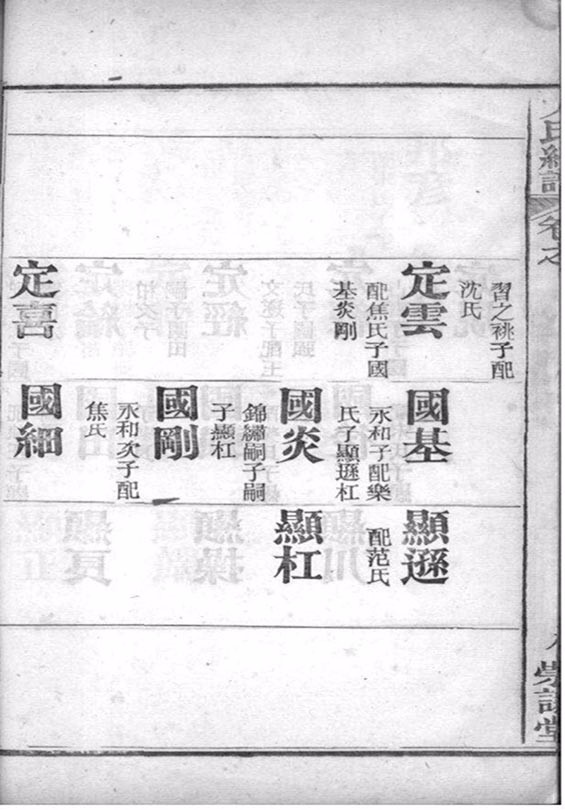 卷之
堂
習之祧子配
沈氏
定雲
配焦氏子國
基炎剛
定喜
國基
永和子配樂
氏子顯遜杠
國炎
錦繡嗣子嗣
子顯杠
國剛
永和次子配
焦氏
國細
顯遜
配范氏
顯杠